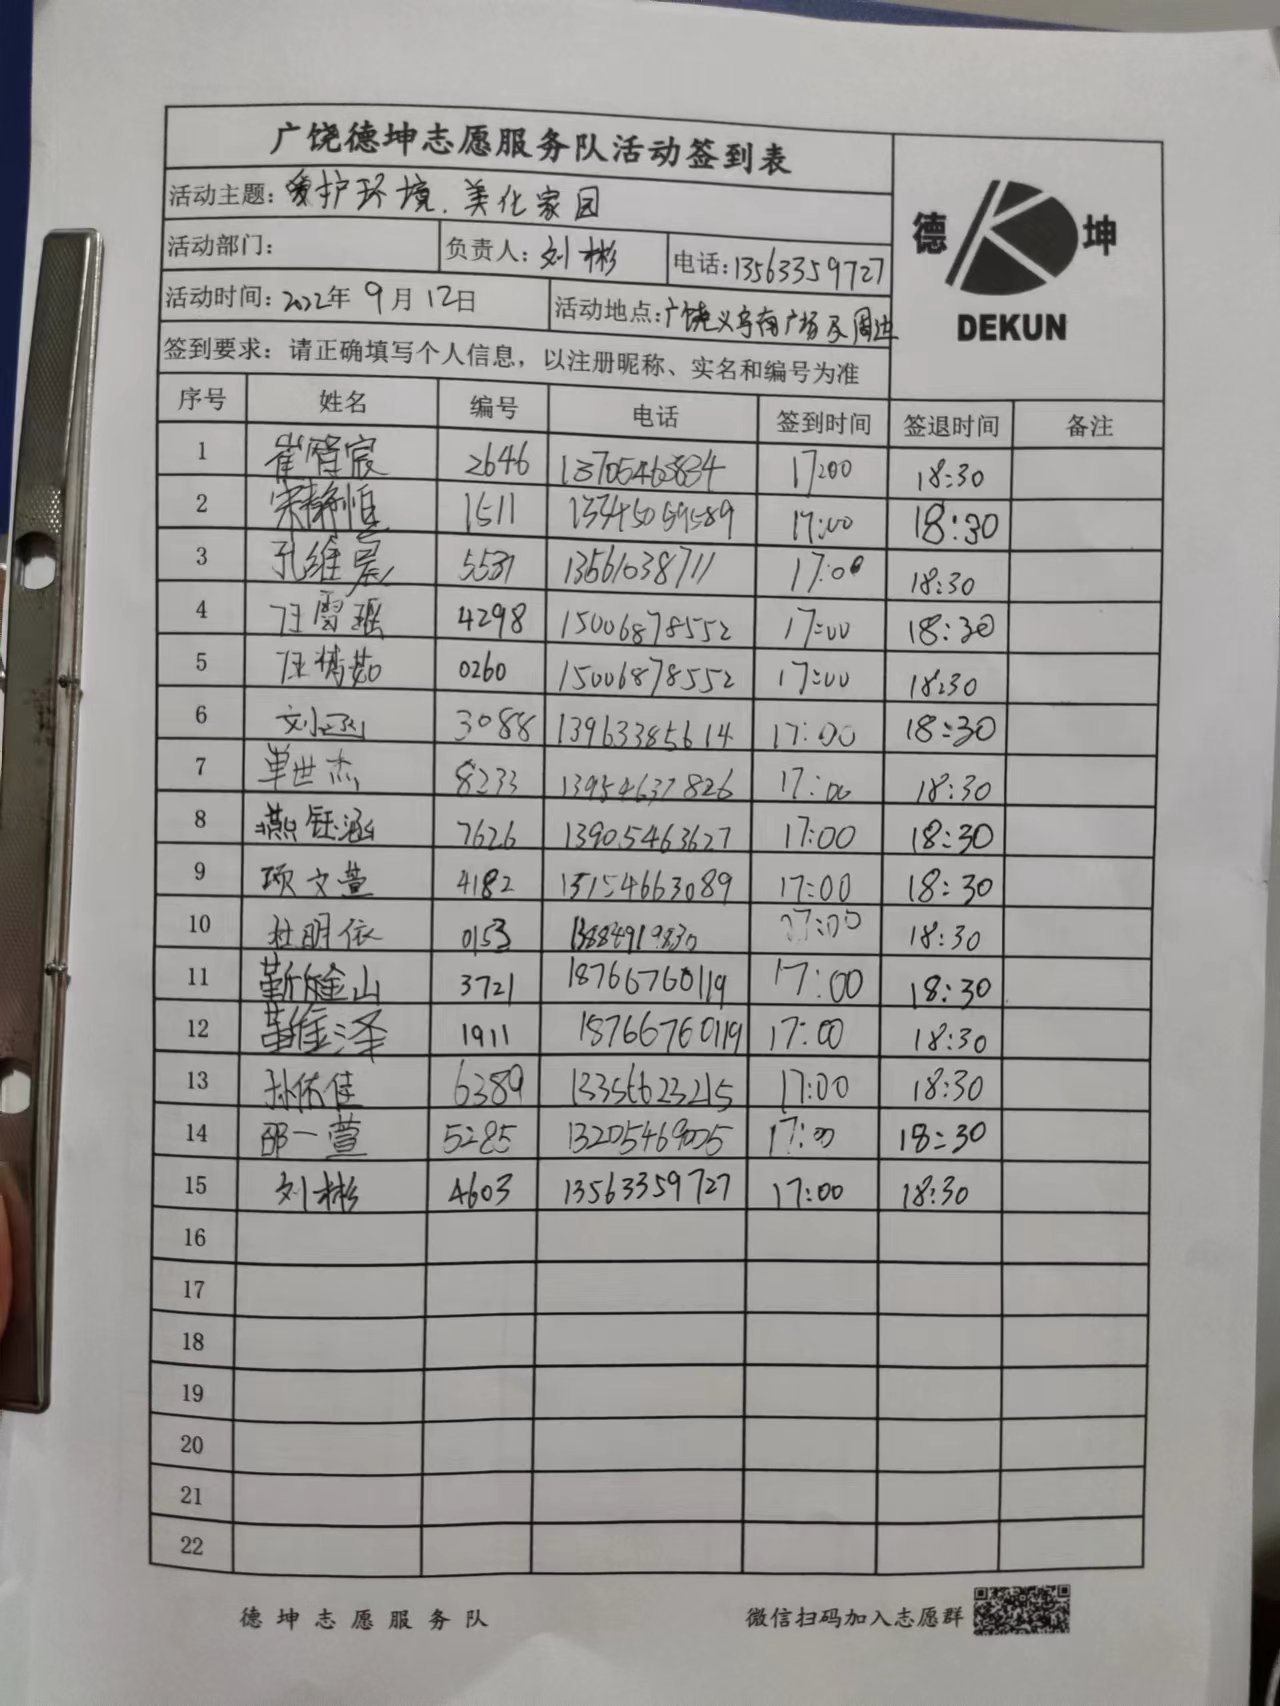 广饶德坤志愿服务队活动签到表
活动主题：爱护环境.美化家园
德 坤
DEKUN
活动部门： 负责人：刘彬 电话：13563359727
活动时间：2022年9月12日 活动地点：广饶义乌商广场及周边
签到要求：请正确填写个人信息，以注册昵称、实名和编号为准
序号 姓名 编号 电话 签到时间 签退时间 备注
1 崔智宸 2646 13705463834 17:00 18:30
2 宋静恒 1511 17:00 18:30
3 孔维晨 5531 13561038711 17:00 18:30
4 任雪瑶 4298 15006878552 17:00 18:30
5 任倩茹 0260 15006878552 17:00 18:30
6 刘 3088 13963385614 17:00 18:30
7 单世杰 8233 13954637826 17:00 18:30
8 燕钰涵 7626 13905463627 17:00 18:30
9 项文萱 4182 15154663089 17:00 18:30
10 杜明依 0153 13884919830 17:00 18:30
11 靳 山 3721 18766760119 17:00 18:30
12 泽 1911 18766760119 17:00 18:30
13 孙依佳 6389 13356623215 17:00 18:30
14 邵一萱 5285 13205469005 17:00 18:30
15 刘彬 4603 13563359727 17:00 18:30
16
17
18
19
20
21
22
德坤志愿服务队 微信扫码加入志愿群